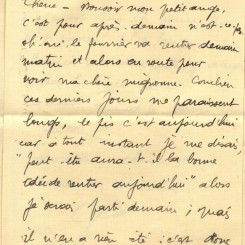 chérie - Bonsoir mon petit ange,
c'est pour après-demain n'est-ce-pas
oh! oui. le fourrier va rentrer demain
matin et alors en route pour
voir ma chère mignonne. Combien
ces derniers jours me paraissent
longs, le pis c'est aujourd'hui
car a tout instant je me disais,
"peut être aura-t-il la bonne
idée de rentrer aujourd'hui" alors
je serai parti demain; mais
il n'en a rien été; c'est donc